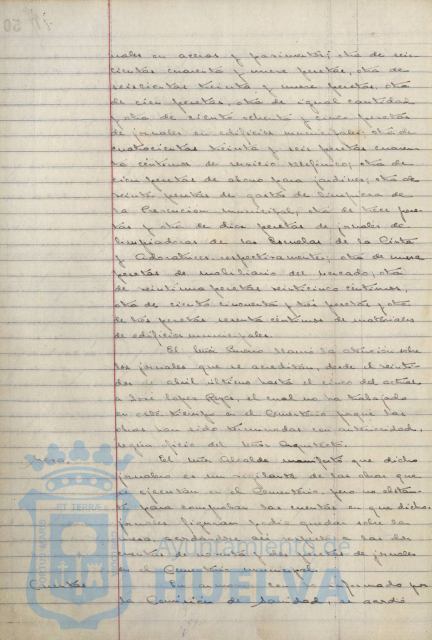 nales en aceras y pavimentos; otra de seis
cientas cuarenta y nueve pesetas, otra de
seiscientas treinta y nueve pesetas, otra
de cien pesetas, otra de igual cantidad
y otra de ciento ochenta y cinco pesetas
de jornales en edificios municipales; otra de
cuatrocientas treinta y seis pesetas cuaren
ta céntimos de servicio telefónico; otra de
cien pesetas de abono para jardines; otra de
veinte pesetas de gastos de limpieza de
la Prevención municipal, otra de trece pese
tas y otra de diez pesetas de jornales de
limpiadoras de las Escuelas de la Cinta
y Adoratrices respectivamente; otra de nueve
pesetas de mobiliario del mercado; otra
de veintiuna pesetas veinticinco céntimos,
otra de ciento cincuenta y tres pesetas y otra
de tres pesetas sesenta céntimos de materiales
de edificios municipales.
El Señor llamó la atención sobre
los jornales que se acreditan, desde el veinti
dos de abril último hasta el cinco del actual
a José López, el cual no ha trabajado
en este tiempo en el Cementerio porque las
obras han sido terminadas con anterioridad,
según oficio del Señor Arquitecto.
El Señor Alcalde manifestó que dicho
jornalero es un vigilante de las obras que
se ejecutan en el Cementerio, pero no obstan
te para comprobar las cuentas en que dichos
jornales figuran podía quedar sobre la
mesa, acordándose así respecto a las dos
de jornales
en el Cementerio municipal.
Cuentas
informado por
la Comisión de Sanidad, se acordó
Ayuntamiento de
HUELVA